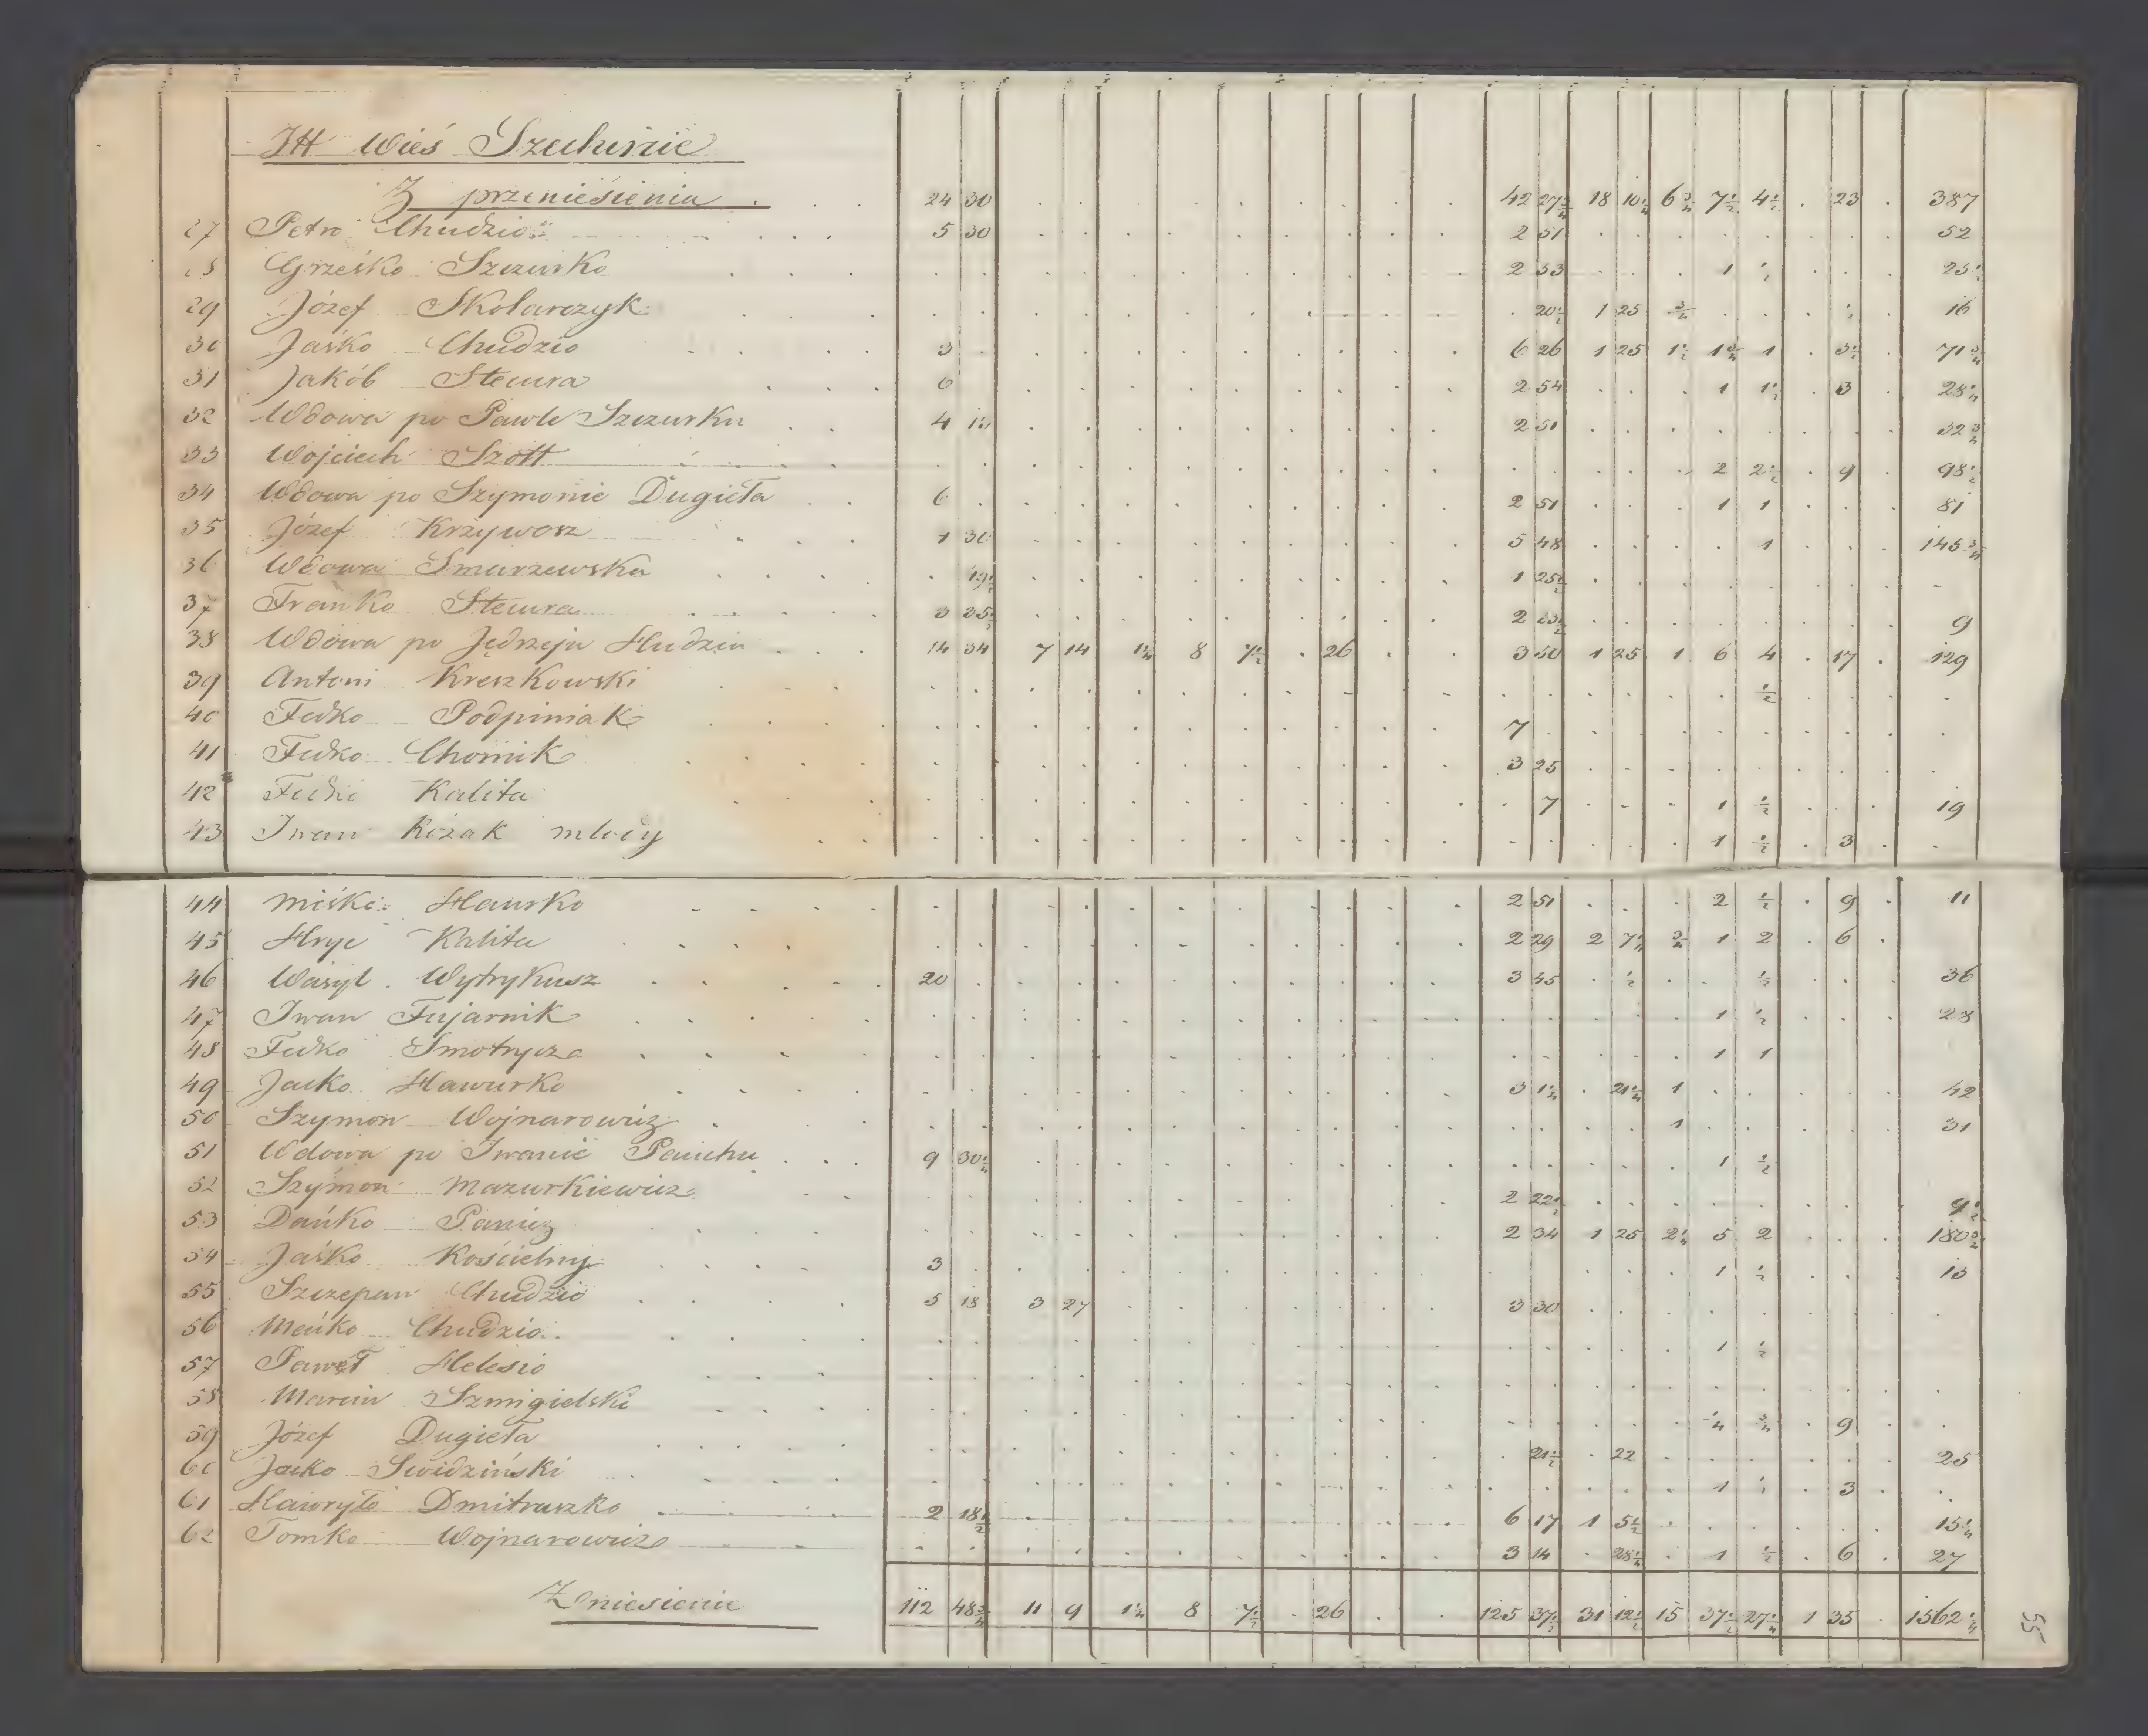 Wieś Szechinie
Z przeniesienia 24 30 42 27¾ 18 10¼ 6¾ 7½ 4½ 23 387
27 Petro Chudzio 5 30 2 51 52
28 Grześko Szczurko 2 33 1 ½ 25½
29 Józef Skolarczyk 20½ 1 25 16
30 Jaśko Chudzio 3 6 26 1 25 1½ 1¾ 1 3½ 71¾
31 Jakób Stecura 6 2 54 1 1½ 3 28¼
32 Wdowa po Pawle Szczurku 4 2 51 32¾
33 Wojciech Szott 2 2½ 9 98½
34 Wdowa po Szymonie Dugiełła 6 2 51 1 1 81
35 Józef Krzywosz 1 30 5 48 1 145¾
36 Wdowa Smarzewska 19½ 1 25½
37 Franko Stecura 3 35½ 2 9
38 Wdowa po Jędrzeju Hudziu 14 34 7 14 1¼ 8 7½ 26 3 50 1 25 1 6 4 17 129
39 Antoni Kreszkowski ½
40 Fedko Podpiniak 7
41 Fedko Chomik 3 25
42 Fedko Kalita 7 1 ½ 19
43 Iwan Kozak młody 1 ½ 3
44 Miśko Hawrko 2 51 2 ½ 9 11
45 Hryc Kalita 2 29 2 7¼ ¾ 1 2 6
46 Wasyl Wytrykusz 20 3 45 ½ ½ 36
47 Iwan Fujarnik 1 ½ 28
48 Fedko Smotrycz 1 1
49 Jacko Hawurko 3 1¼ 21¼ 1 42
50 Szymon Wojnarowicz 1 31
51 Wdowa po Iwanie Pauchu 9 30¼ 1 ½
52 Szymon Mazurkiewicz 2 22½ 9½
53 Dańko Panicz 2 34 1 25 2¼ 5 2 180¾
54 Jaśko Kościelny 3 1 ½ 13
55 Szczepan Chudzio 5 18 3 27 3 30
56 Meńko Chudzio 1 ½
57 Paweł Helesio
58 Marcin Szmigielski ¼ ¾ 9
59 Józef Dugiełła 21½ 22 25
60 Jacko Swidziński 1 ½ 3
61 Hawryło Dmitraszko 2 18½ 6 17 1 5½ 15¼
62 Tomko Wojnarowicz 3 14 28¼ 1 ½ 6 27
Zniesienie 112 48¾ 11 9 1¼ 8 7½ 26 125 37½ 31 12½ 15 37½ 27¼ 1 35 1562¼
55